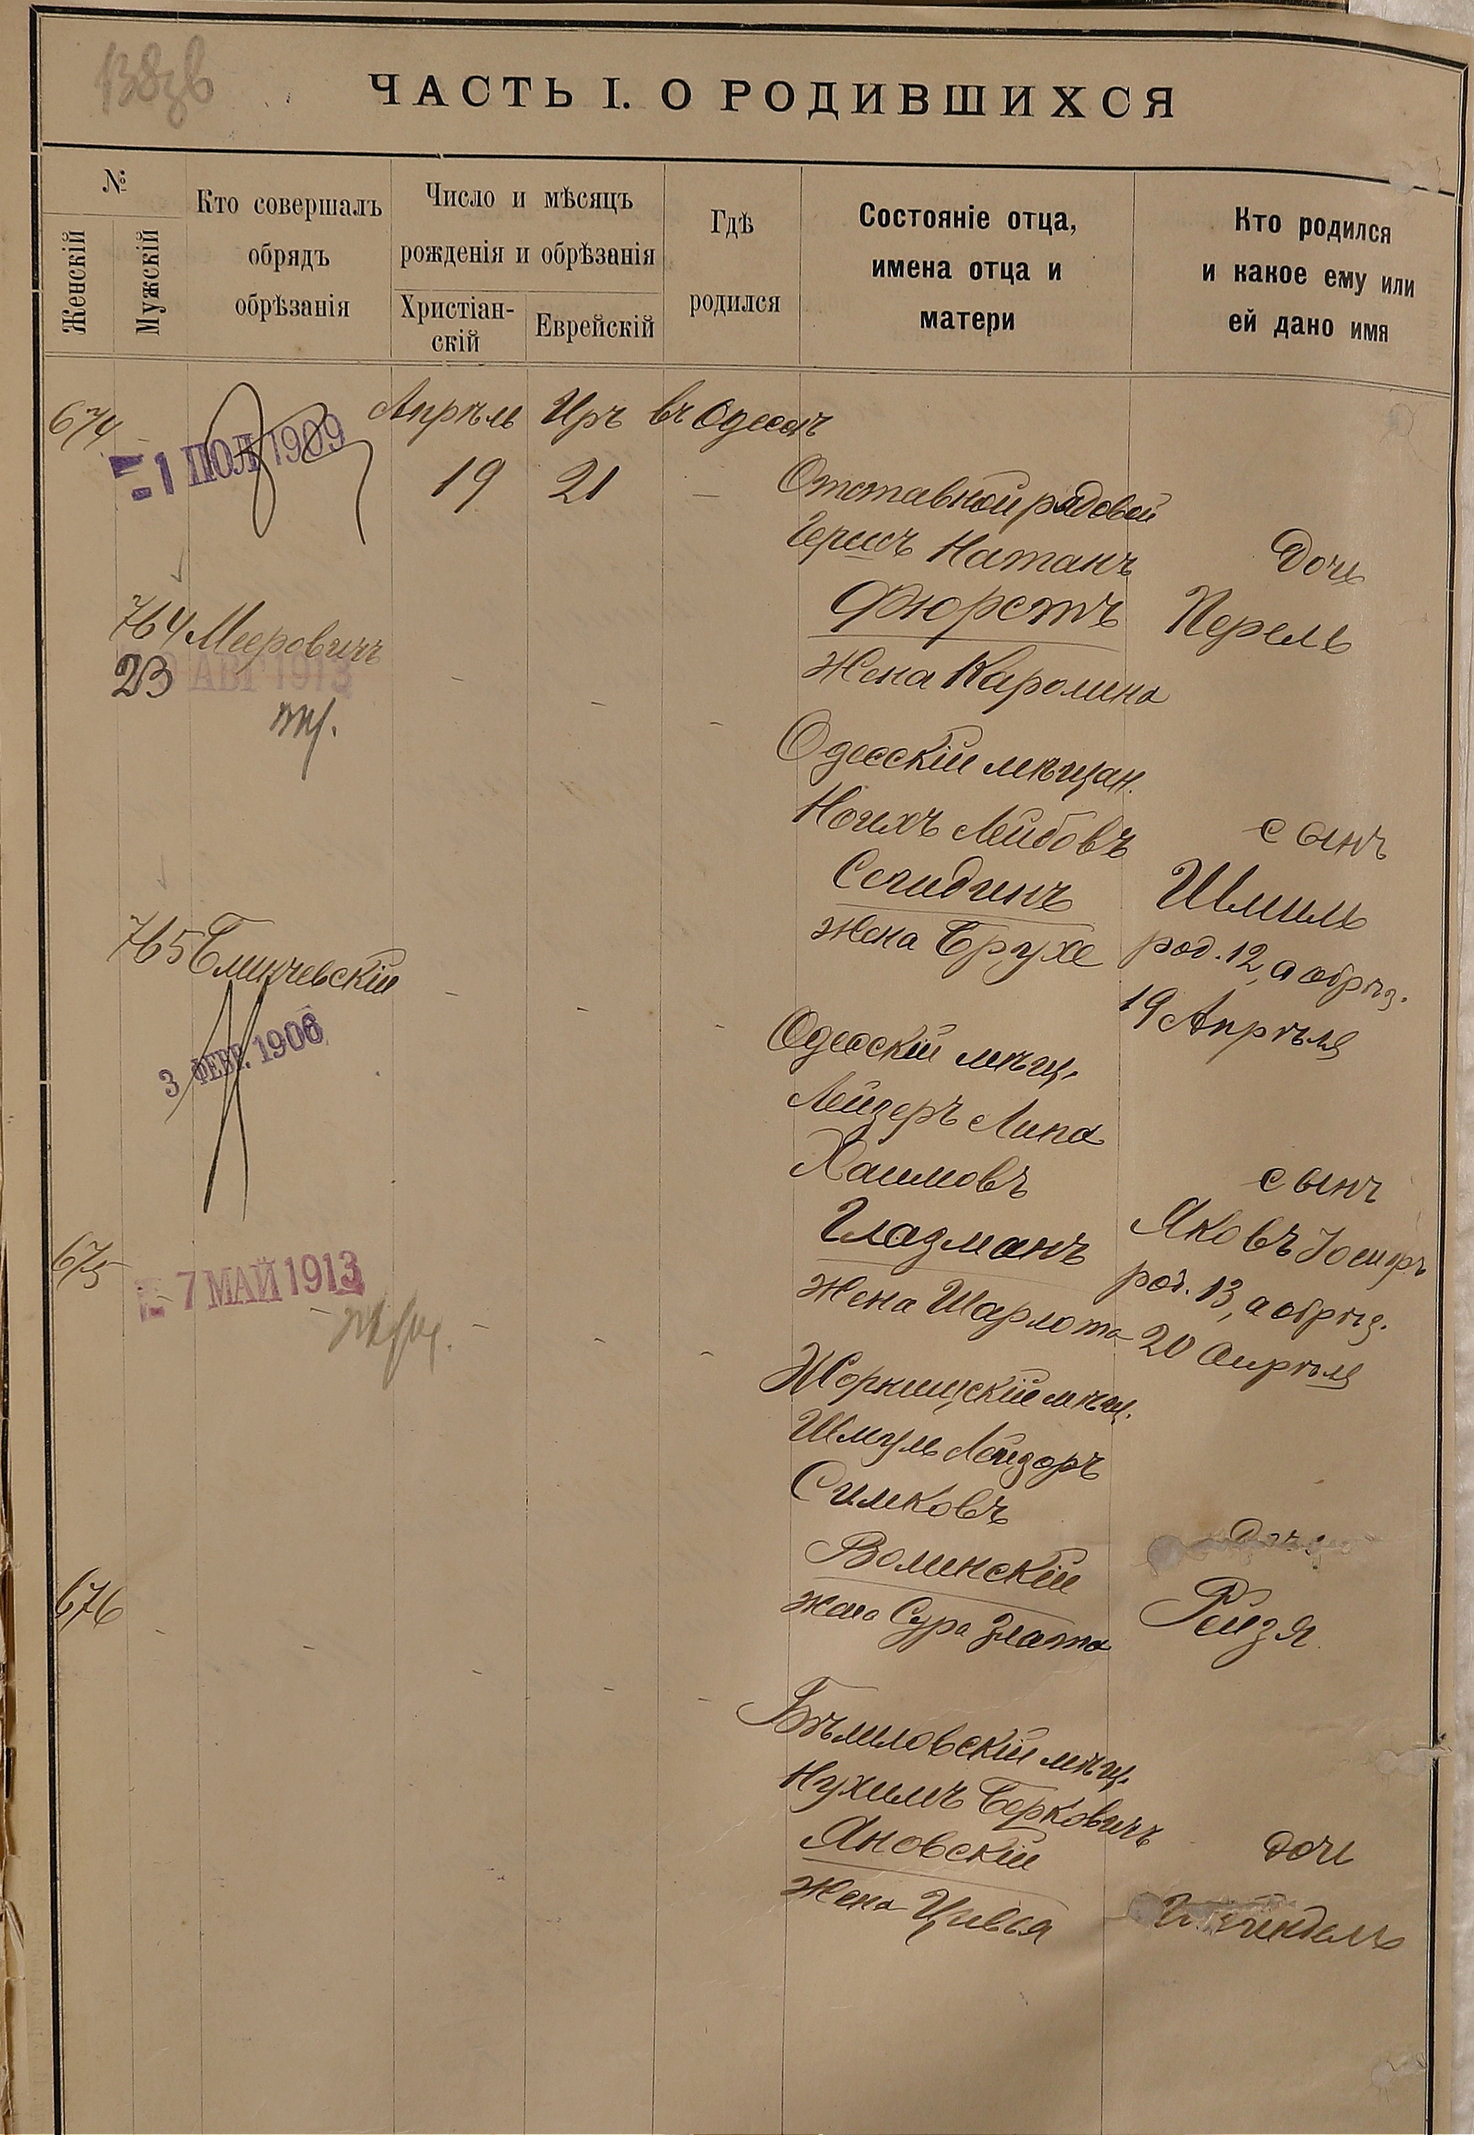 ЧАСТЬ I. О РОДИВШИХСЯ
№
Женскій
Мужскій
Кто совершалъ
обрядъ
обрѣзанія
Число и мѣсяцъ
рожденія и обрѣзанія
Христіан-
скій
Еврейскій
Гдѣ
родился
Состояніе отца,
имена отца и
матери
Кто родился
и какое ему или
ей дано имя
674
1909
Апрѣль Иръ въ Одессѣ
19 21 –
Отставной рядовой
Гершъ Натанъ
Фюрстъ
Жена Каролина
Дочь
Перель
764 Мееровичъ
23
АВГ 1913
Одесскій мѣщан.
Нохимъ Лейбовъ
Жена Брухе
сынъ
Шмиль
род. 12, а обрѣз.
19 Апрѣля
765
3 ФЕВР. 1906
Одесскій мѣщ.
Лейзеръ Липа
Хаимовъ
Глазманъ
Жена Шарлота
сынъ
Яковъ Іосифъ
род. 13, а обрѣз.
20 апрѣля
675
7 МАЙ 1913
Жорнищскій мѣщ.
Шмуль Лейзоръ
Симховъ
Волинскій
жена Сура Злата
Рейзя
676
Бѣлиловскій мѣщ.
Нухимъ Берковичъ
Яновскій
Жена Цивья
дочь